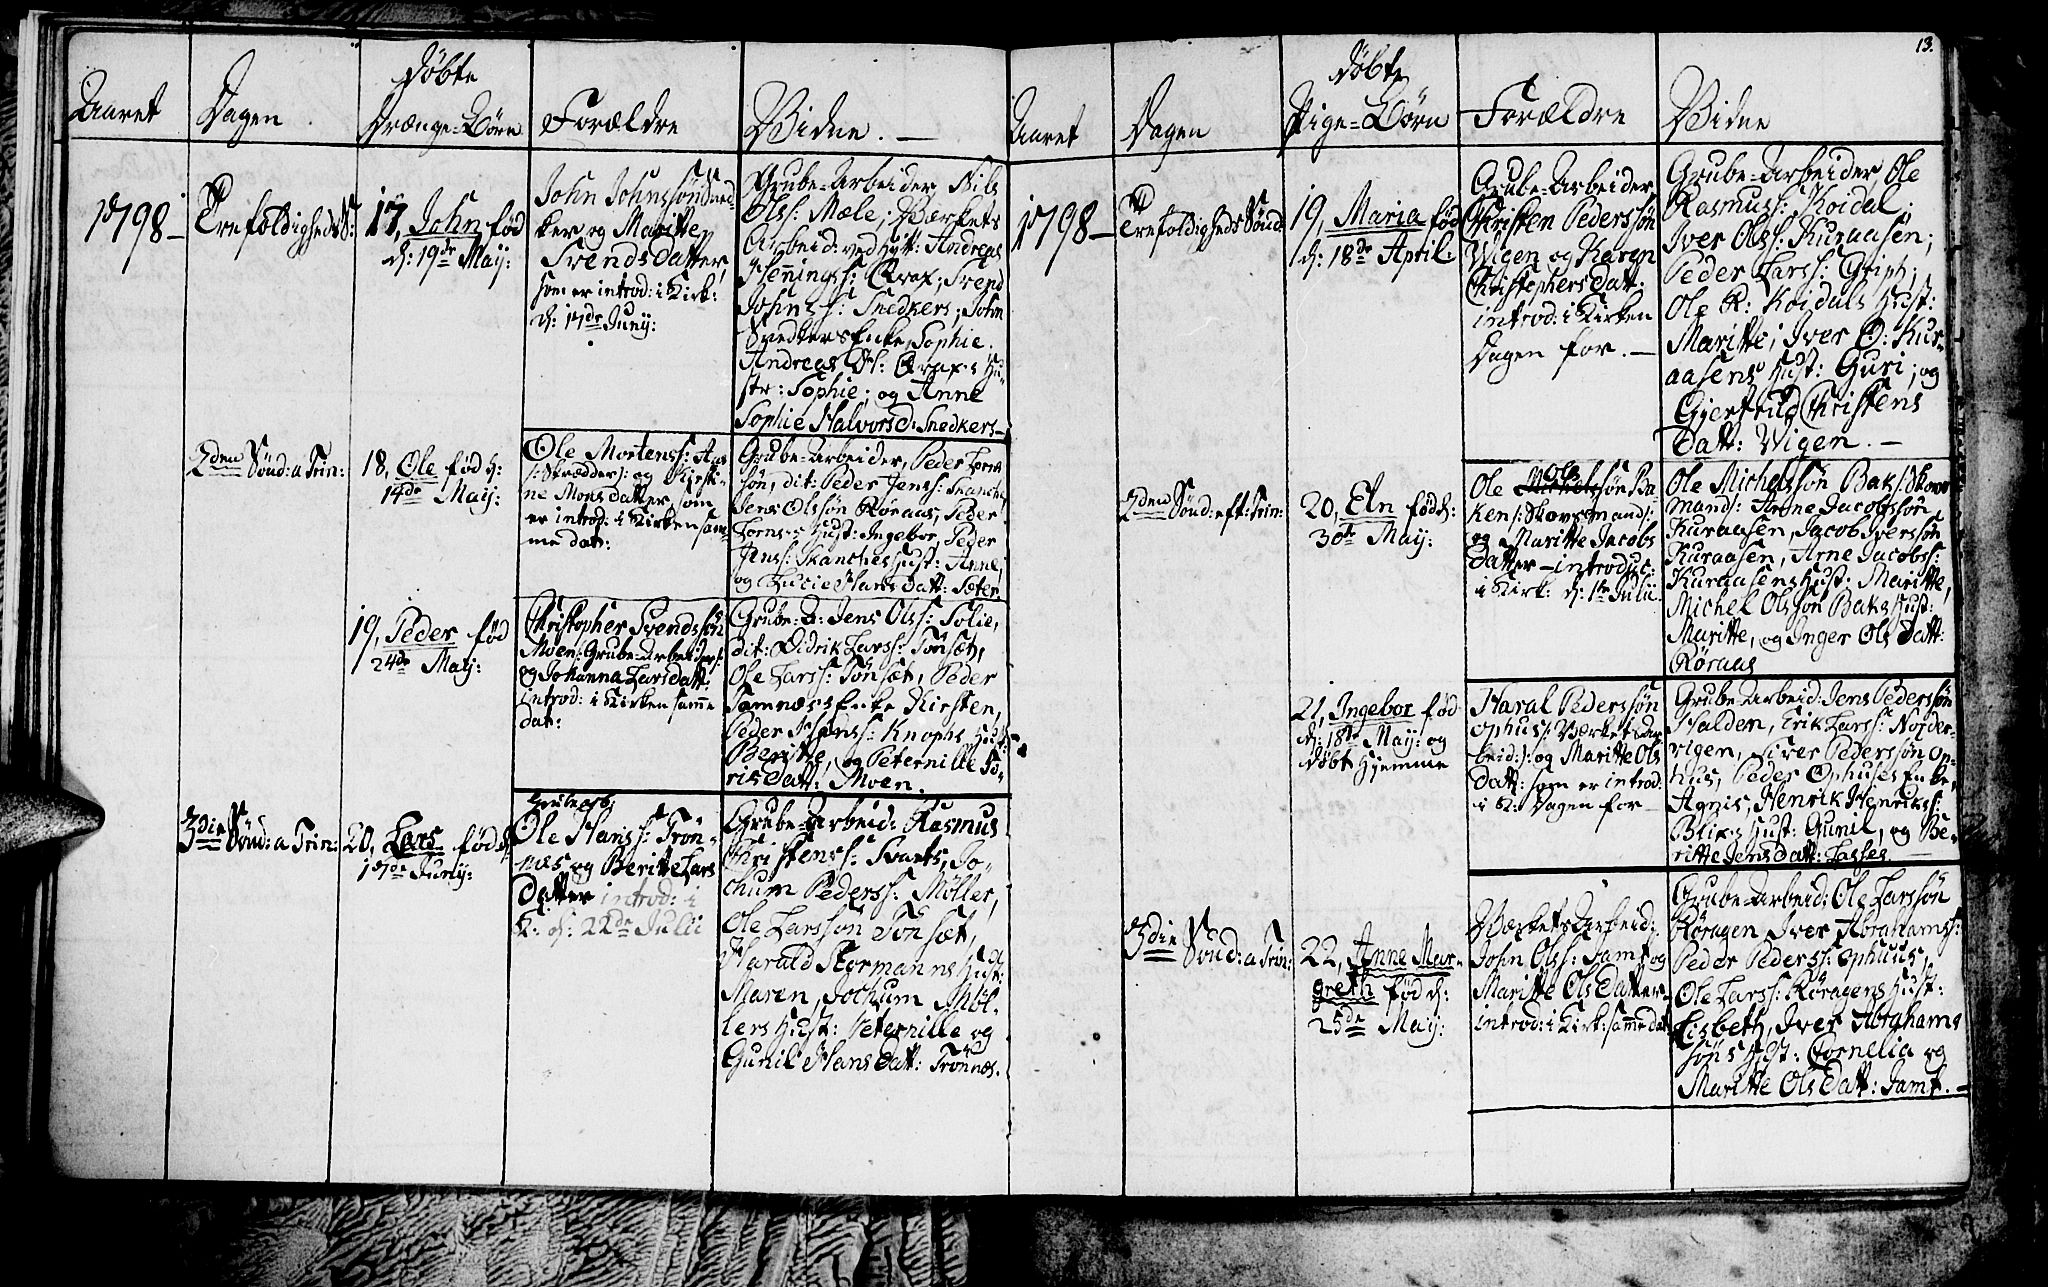 13.
Aaret
Dagen
Døbte
Drænge-Børn
Forældre
Vidne. —
1798 —
Trefoldigheds S:
17, John fød
d: 19de Maij:
John Johnssøn Sned-
ker og Maritte
Svends Datter,
som er introd: i Kirk:
d: 17de Junij:
Grube-Arbeider Nils
Olss: Mæle; Værkets
Arbeid: ved Hytt: Andreas
Hennings: Graf; Svend
Johnss: Snedkers; John
Snedkers Enke, Sophie.
Andreas H: Grafs Hu-
str: Sophie; og Anne
Sophie Halvorsd: Snedkers —
2den Sønd: a Trin:
18, Ole fød d:
14de Maij:
Ole Mortenss: Aas
/: Skrædder:/ og Kirsti-
ne Mons Datter, som
er introd: i Kirken sam-
me dat:
Grube-Arbeider, Peder
søn, dit: Peder Jenss: Skancke,
Jens Olssøn Røraas, Peder
Hust: Ingebor, Peder
Jenss: Skanches Hust: Anne,
og Lucie Hans Datt: Sæter.
19, Peder fød
24de Maij:
Christopher Svendssøn
Moen /: Grube-Arbeider:/
og Johanna Lars Datt:
introd: i Kirken samme
dat:
Grube-A: Jens Olss: Tolie,
dit: Didrik Larss: Tønset,
Ole Larss: Tønset, Peder
Tamnæs Enke Kirsten,
Peder Hanss: Knophs Hust:
Beritte, og Peternille To-
ris Datt: Moen.
3die Sønd: a Trin:
20, Lars fød d:
17de Junij:
Grubearb:
Ole Hanss: Trøn-
næs og Beritte Lars
Datter introd: i
K: d: 22de Julii
Grube-Arbeid: Rasmus
Christenss: Svarts, Jo-
chum Pederss: Møller,
Ole Larssøn Tønset,
Harald Stormanns Hust:
Maren, Jochum Møl-
lers Hust: Peternille og
Gunil Hans Datt: Trønnæs.
Aaret
Dagen
Døbte
Pige-Børn
Forældre
Vidne
1798 —
Trefoldigheds Sønd:
19, Maria fød
d: 18de April:
Grube-Arbeider
Christen Pederssøn
Wigen og Karen
Christophers Datt:
introd: i Kirken
Dagen for. —
Grube-Arbeider, Ole
Rasmuss: Koidal;
Iver Olss: Kuraasen;
Peder Larss: Griph;
Ole R: Koidals Hust:
Maritte; Iver O: Kur-
aasens Hust: Guri; og
Gjertrud Christens
Datt: Wigen. —
2den Sønd: eft: Trin:
20, Eln fød d:
30te Maij:
Ole
Ole Michelssøn Ba-
ken /: Skovsmand:/
og Maritte Jacobs
Datter — introduc:
i Kirk: d: 1te Julii
Ole Michelssøn Bak /: Skovs
mand:/ Arne Jacobssøn
Kuraasen, Jacob Iverssøn
Kuraasen, Arne Jacobss:
Kuraasens Hust: Maritte,
Michel Olssøn Baks Hust:
Maritte, og Inger Ols Datt:
Røraas
21, Ingebor fød
d: 18de Maij: og
døbt Hjemme
Haral Pederssøn
Ophus /: Værkets Ar-
beid:/ og Maritte Ols
Datt: som er introd:
i K: Dagen for —
Grube-Arbeid: Jens Pederssøn
Halden, Erik Larss: Norder-
vigen, Siver Pederssøn Op-
hus, Peder Ophuses Enke,
Agnis, Henrik Henrikss:
Blix's Hust: Gunil, og Be-
ritte Jens Datt: Lasses. —
3die Sønd: a Trin:
22, Anne Mar-
greth fød d:
25de Maij:
Værkets Arbeid:
John Olss: Jamt og
Maritte Ols Datter —
introd: i Kirk: samme dat:
Grube-Arbeid: Ole Larssøn
Røragen, Iver Abrahamss:
Peder Pederss: Ophuus,
Ole Larss: Røragens Hust:
Lisbeth, Iver Abrahams
søns Hust: Cornelia og
Maritte Ols Datt: Jamt. —